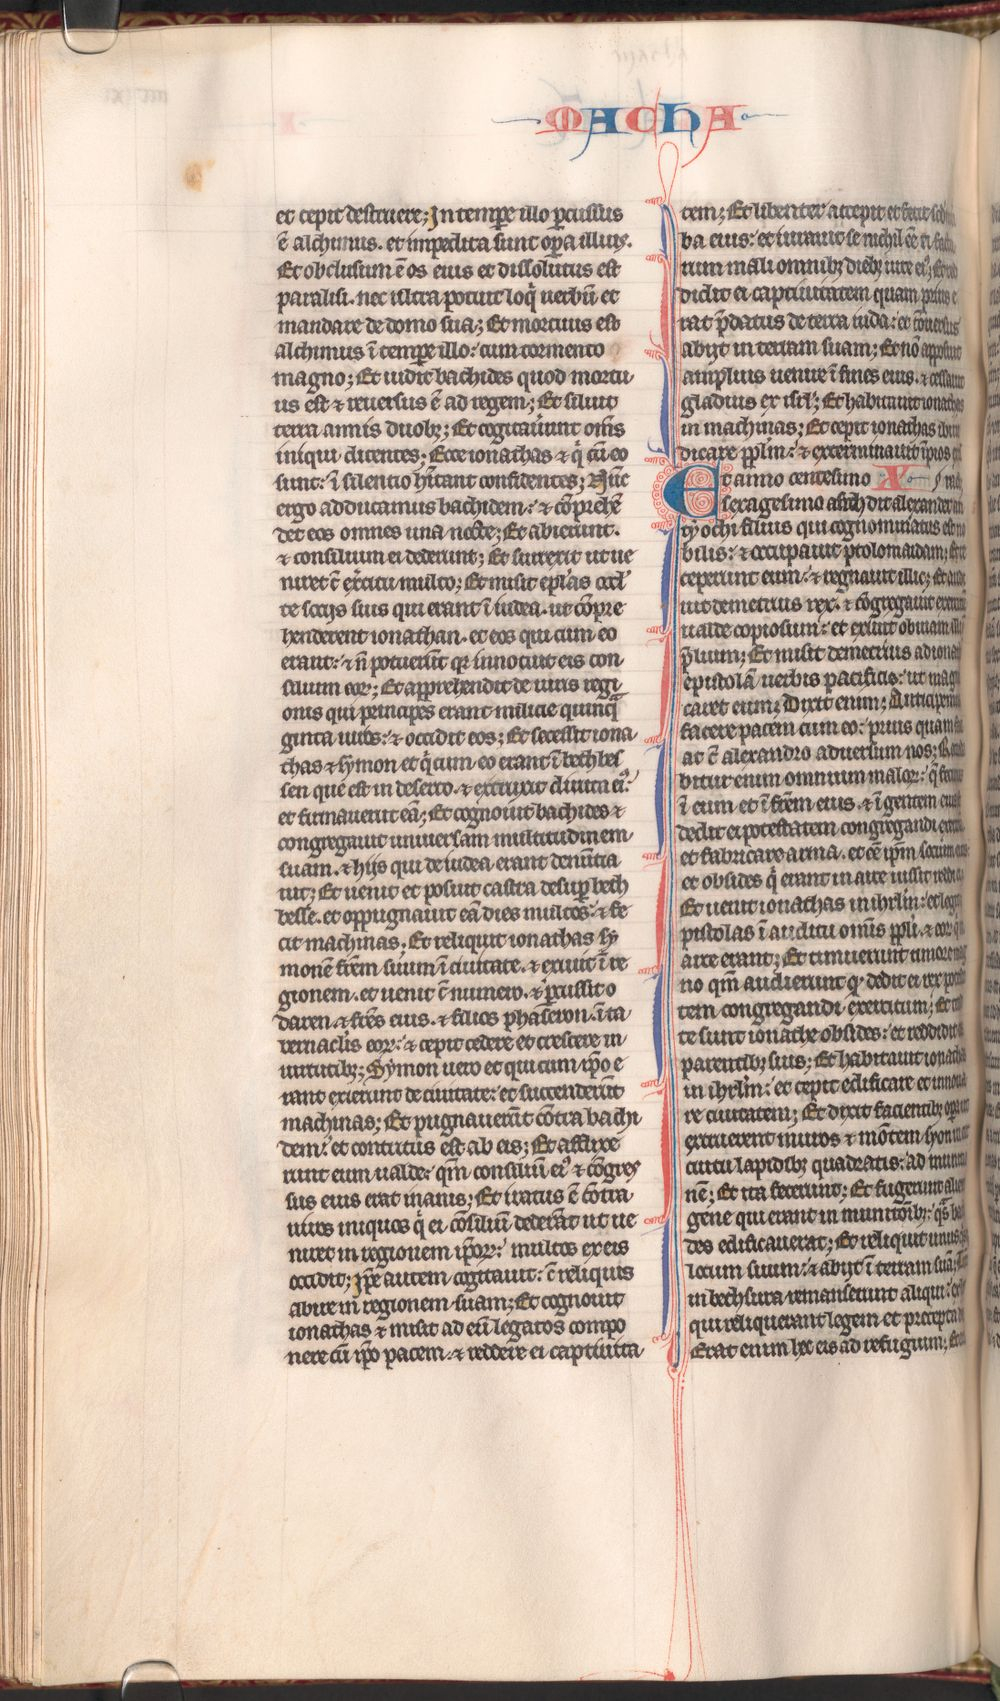 MACHA
et cepit destruere; In tempe illo pcussus
ē alchimus. et impedita sunt opa illiuꝫ.
Et obclusum ē os eius et dissolutus est
paralisi. nec ultra potuit loq̇ uerbū et
mandare de domo sua; Et mortuus est
alchimus ī tempe illo: cum tormento
magno; Et uidit bachides quod mortu
us est ⁊ reuersus ē ad regem; Et siluit
terra annis duobꝫ; Et cogitauūnt om̄s
iniqui dicentes; Ecce ionathas ⁊ q̇ cū eo
sunt: ī silentio hītant confidentes; Nūc
ergo adducamus bachidem: ⁊ cōprehē
det eos omnes una nocte; Et abierunt.
⁊ consilium ei dederunt; Et surrexit ut ue
niret c̄ ex̄citu multo; Et misit epl̄as occl̄
te socijs suis qui erant ī iudea. ut cōpre
henderent ionathan. et eos qui cum eo
erant: ⁊ n̄ potuerūt qꝛ innotuit eis con
silium eoꝝ; Et apprehendit de uiris regi
onis qui principes erant milicie quinq̄
ginta uiros: ⁊ occidit eos; Et secessit iona
thas ⁊ symon et q̇ cum eo erant ī bethbes
sen que est in deserto. ⁊ extruxit diruta eiꝰ
et firmauerūt eā; Et cognouit bachides ⁊
congregauit uniuersam multitudinem
suam. ⁊ hijs qui de iudea erant denūtia
uit; Et uenit et posuit castra desup beth
besse. et oppugnauit eā dies multos: ⁊ fe
cit machinas. Et reliquit ionathas sy
monē frēm suum ī ciuitate. ⁊ exiuit ī re
gionem. et uenit c̄ numero. ⁊ pcussit o
daren. ⁊ frēs eius. ⁊ filios phaseron. ī ta
bernacl̄is eoꝝ: ⁊ cepit cedere et crescere in
uirtutibꝫ; Symon uero et qui cum ip̄o e
rant exierunt de ciuitate: et succenderūt
machinas; Et pugnauerūt cōtra bachi
dem: et contritus est ab eis; Et afflixe
runt eum ualde: qm̄ consiliū eiꝰ ⁊ cōgres
sus eius erat inanis; Et iratus ē cōtra
uiros iniquos q̇ ei cōsiliū dederāt ut ue
niret in regionem ip̄oꝝ: multos ex eis
occidit; Ip̄e autem cogitauit: c̄ reliquis
abire in regionem suam; Et cognouit
ionathas ⁊ misit ad eū legatos compo
nere cū ip̄o pacem. ⁊ reddere ei captiuita
tem; Et libenter accepit et fecit
ba eius: et iurauit se nichil
rum mali omnibꝫ diebꝫ uite eiꝰ;
didit ei captiuitatem quam prius e
rat p̄datus de terra iuda: et cōuersus
abijt in terram suam; Et nō apposuit
amplius uenire ī fines eius. ⁊ cessauit
gladius ex isrl̄; Et habitauit ionathas
in machinas; Et cepit ionathas ibi
dicare ppl̄m: ⁊ exterminauit īpios
Et anno centesimo X
sexagesimo ascendit alexander
tyochi filius qui cognominatus est no
bilis: ⁊ occupauit ptolomaidam;
ceperunt eum: ⁊ regnauit illic; Et
uit demetrius rex. ⁊ cōgregauit
ualde copiosum: et exiuit obuiam
p̄lium; Et misit demetrius ad
epistolā uerbis pacificis: ut magni
caret eum; Dixit enim; Anticipem
facere pacem cum eo: prius quam
at c̄ alexandro aduersum nos;
bitur enim omnium maloꝝ: q̄
ī eum et ī frēm eius. ⁊ ī gentem
dedit ei potestatem congregandi
et fabricare arma. et ēē ip̄m
et obsides q̇ erant in arce iussit
Et uenit ionathas in ihrl̄m:
pistolas ī auditu om̄is ppl̄i. ⁊ eoꝝ
arce erant; Et timuerunt timore
no qm̄ audierunt qꝛ dedit ei rex
tem congregandi exercitum; Et
te sunt ionathe obsides: et reddidit
parentibꝫ suis; Et habitauit
in ihrl̄m: et cepit edificare et
re ciuitatem; Et dixit facientibꝫ
extruerent muros ⁊ mōtem syon
cuitu lapidibꝫ quadratis: ad
nē; Et ita fecerunt; Et fugerunt
gene qui erant in munitōibꝫ:
des edificauerat; Et reliquit
locum suum: ⁊ abijt ī terram suā;
in bethsura remanserunt aliqui:
qui reliquerant legem et precepta
Erat enim hec eis ad refugium;